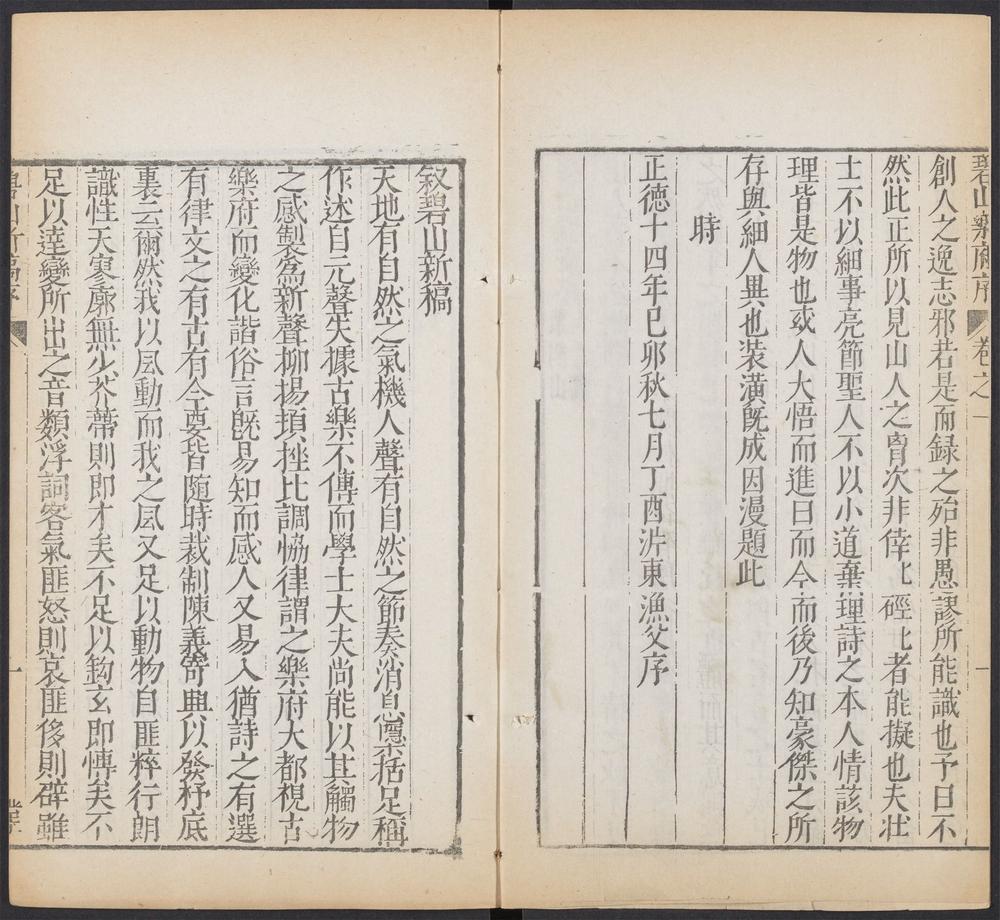 碧山樂府序 卷之一
創人之逸志邪若是而録之殆非愚謬所能識也予曰不
然此正所以見山人之胷次非倖比硜比者能擬也夫壮
士不以細事亮節聖人不以小道棄理詩之本人情該物
理皆是物也或人大悟而進曰而今而後乃知豪傑之所
存與細人異也装潢旣成因漫題此
時
正德十四年已夘秋七月丁酉沜東漁父序
叙碧山新稿
天地有自然之氣機人聲有自然之節奏消息隱括足稱
作述自元聲失據古樂不傳而學士大夫尚能以其觸物
之感製爲新聲抑揚頊挫比調恊律謂之樂府大都視古
樂府而變化諧俗言旣易知而感人又易入猶詩之有選
有律文之有古有今要皆隨時裁制陳義寄興以發抒底
裏云爾然我以風動而我之風又足以動物自匪粹行朗
識性天寥廓無少芥蔕則即才矣不足以鈎玄即慱矣不
足以達變所出之音類浮詞客氣匪怒則哀匪侈則辟雖
碧山新稿序
一